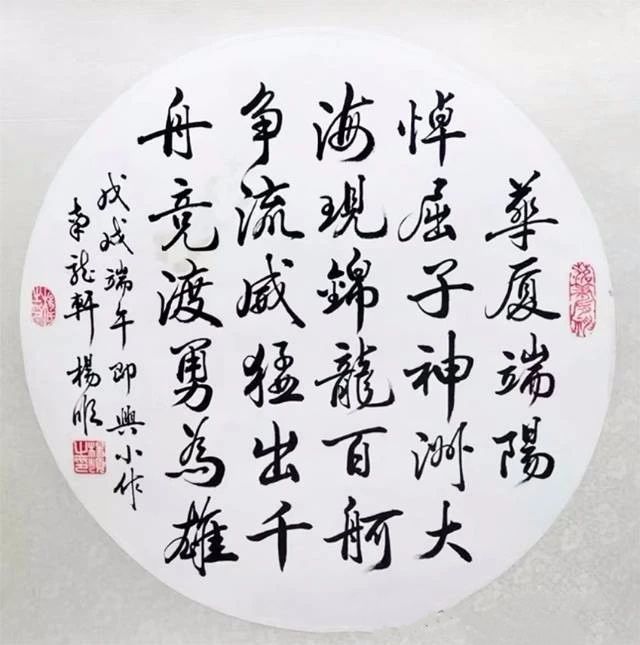 華厦端陽
悼屈子神洲大
海現錦龍百舸
争流威猛出千
舟竞渡勇為雄
戊戌端午即興小作
南龍軒 楊順